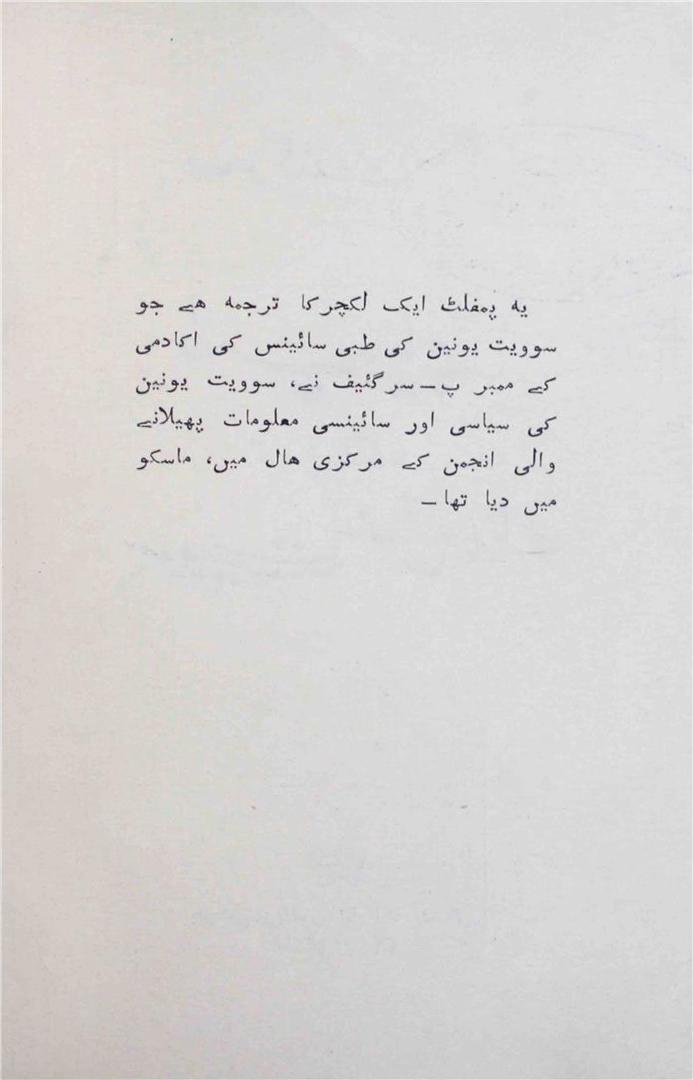 یه پمفلٹ ایک لکچرکا ترجمه هے جو
سوویت یونین کی طبی سائینس کی اکادمی
کے ممبر پ۔ سرگئیف نے، سوویت یونین
کی سیاسی اور سائینسی معلومات پھیلانے
والی انجمن کے مرکزی هال میں، ماسکو
میں دیا تھا۔